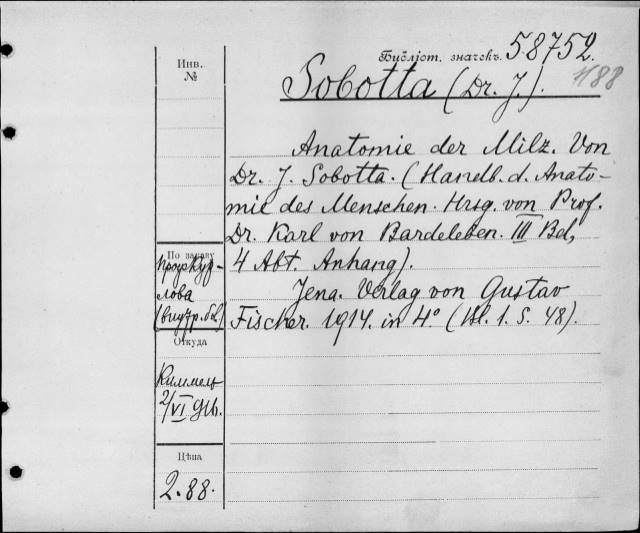 Инв. №
Библіот. значекъ. 58752.
1188
Sobotta (Dr. J.).
Anatomie der Milz. Von
Dr. J. Sobotta. (Handb. d. Anato-
mie des Menschen. Hrsg. von Prof.
Dr. Karl von Bardeleben. III Bd,
4 Abt. Anhang).
Jena. Verlag von Gustav
Fischer. 1914. in 4° (Bl. 1. S. 48).
По заказу
Проф Кур-
лова
Откуда
Киммель
2/VI 916.
Цѣна
2.88.